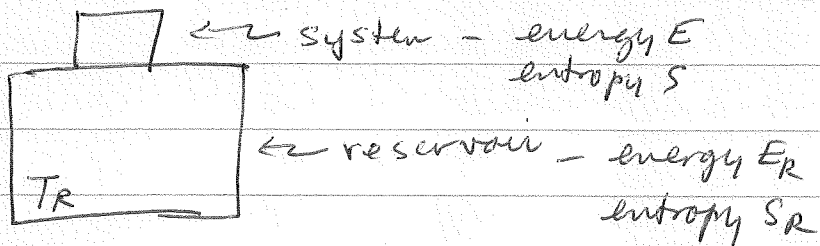 system - energy E
entropy S
reservoir - energy E_R
T_R
entropy S_R